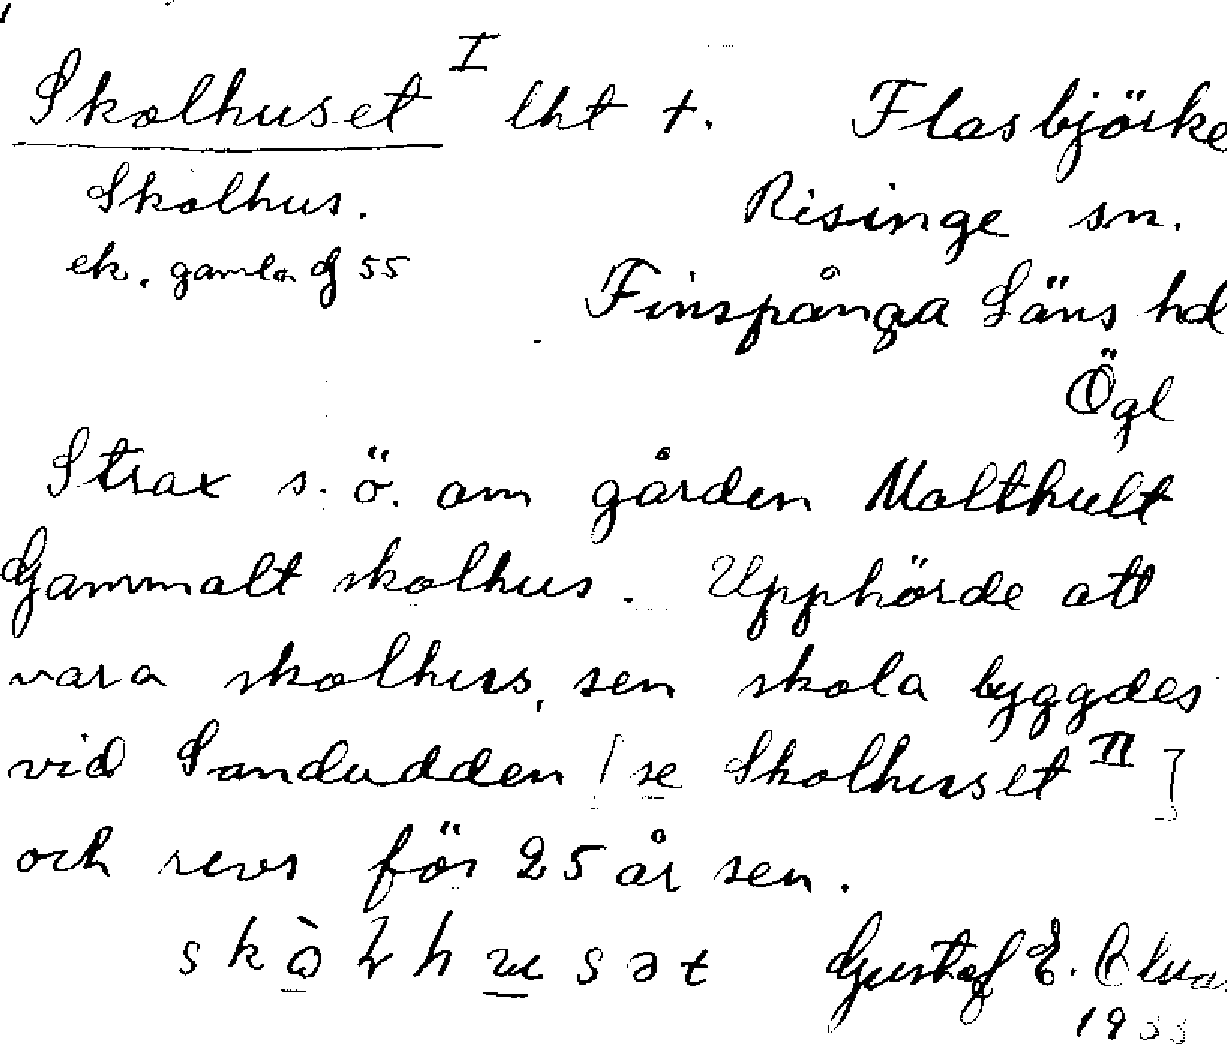 Skolhuset I lht +. Flasbjörke
Skolhus. Risinge sn.
ek. gamla 55
Finspånga Läns hd
Ögl
Strax s. ö. om gården Malthult
Gammalt skolhus. Upphörde att
vara skolhus, sen skola byggdes
vid Sandudden [se Skolhuset II]
och revs för 25 år sen.
Gustaf E.
1933